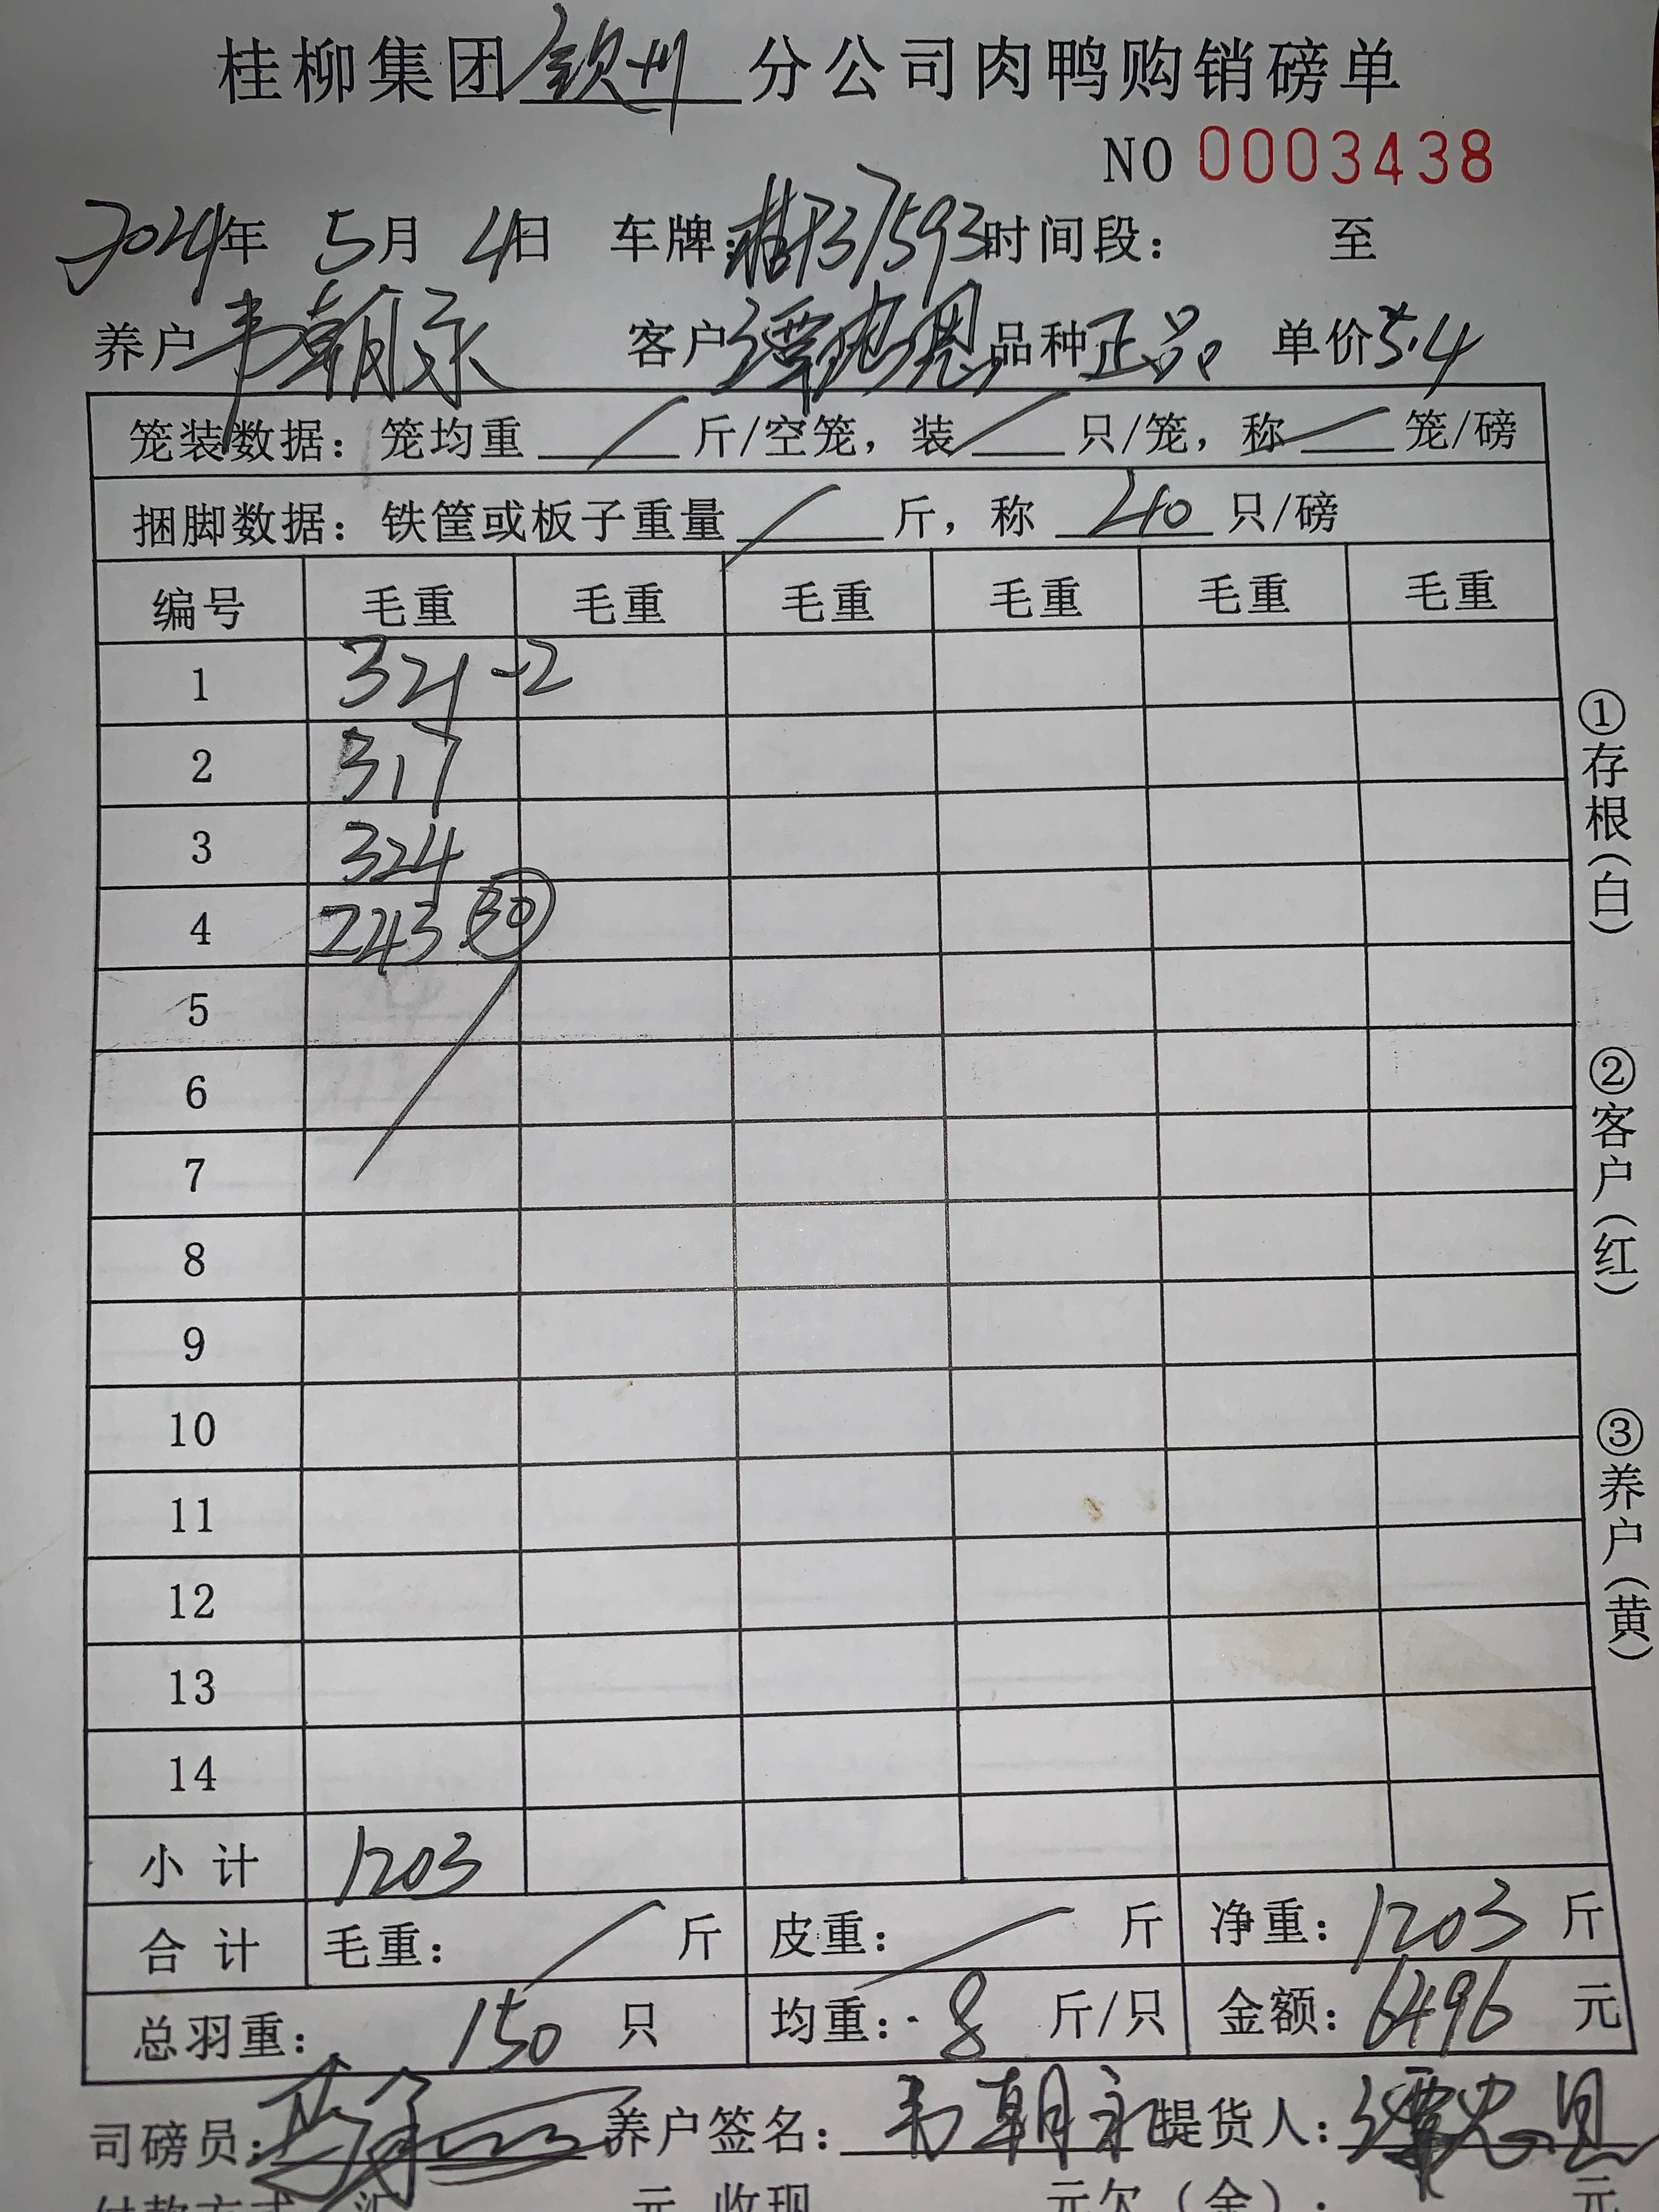 桂柳集团钦州分公司肉鸭购销磅单
NO 0003438
2024年 5月 4日 车牌:桂F37593 时间段: 至
养户 韦朝永 客户 谭忠恩 品种 正品 单价 5.4
笼装数据: 笼均重 / 斤/空笼, 装 / 只/笼, 称 / 笼/磅
捆脚数据: 铁筐或板子重量 / 斤, 称 40 只/磅
编号 毛重 毛重 毛重 毛重 毛重 毛重
1 321-2
2 317
3 324
4 243 30
5
6
7
8
9
10
11
12
13
14
小计 1203
合计 毛重: / 斤 皮重: / 斤 净重: 1203 斤
总羽重: 150 只 均重: 8 斤/只 金额: 6496 元
司磅员: 养户签名: 韦朝永 提货人: 谭忠恩
付款方式 汇 元 收现 元欠(余): 元
①存根(白)
②客户(红)
③养户(黄)